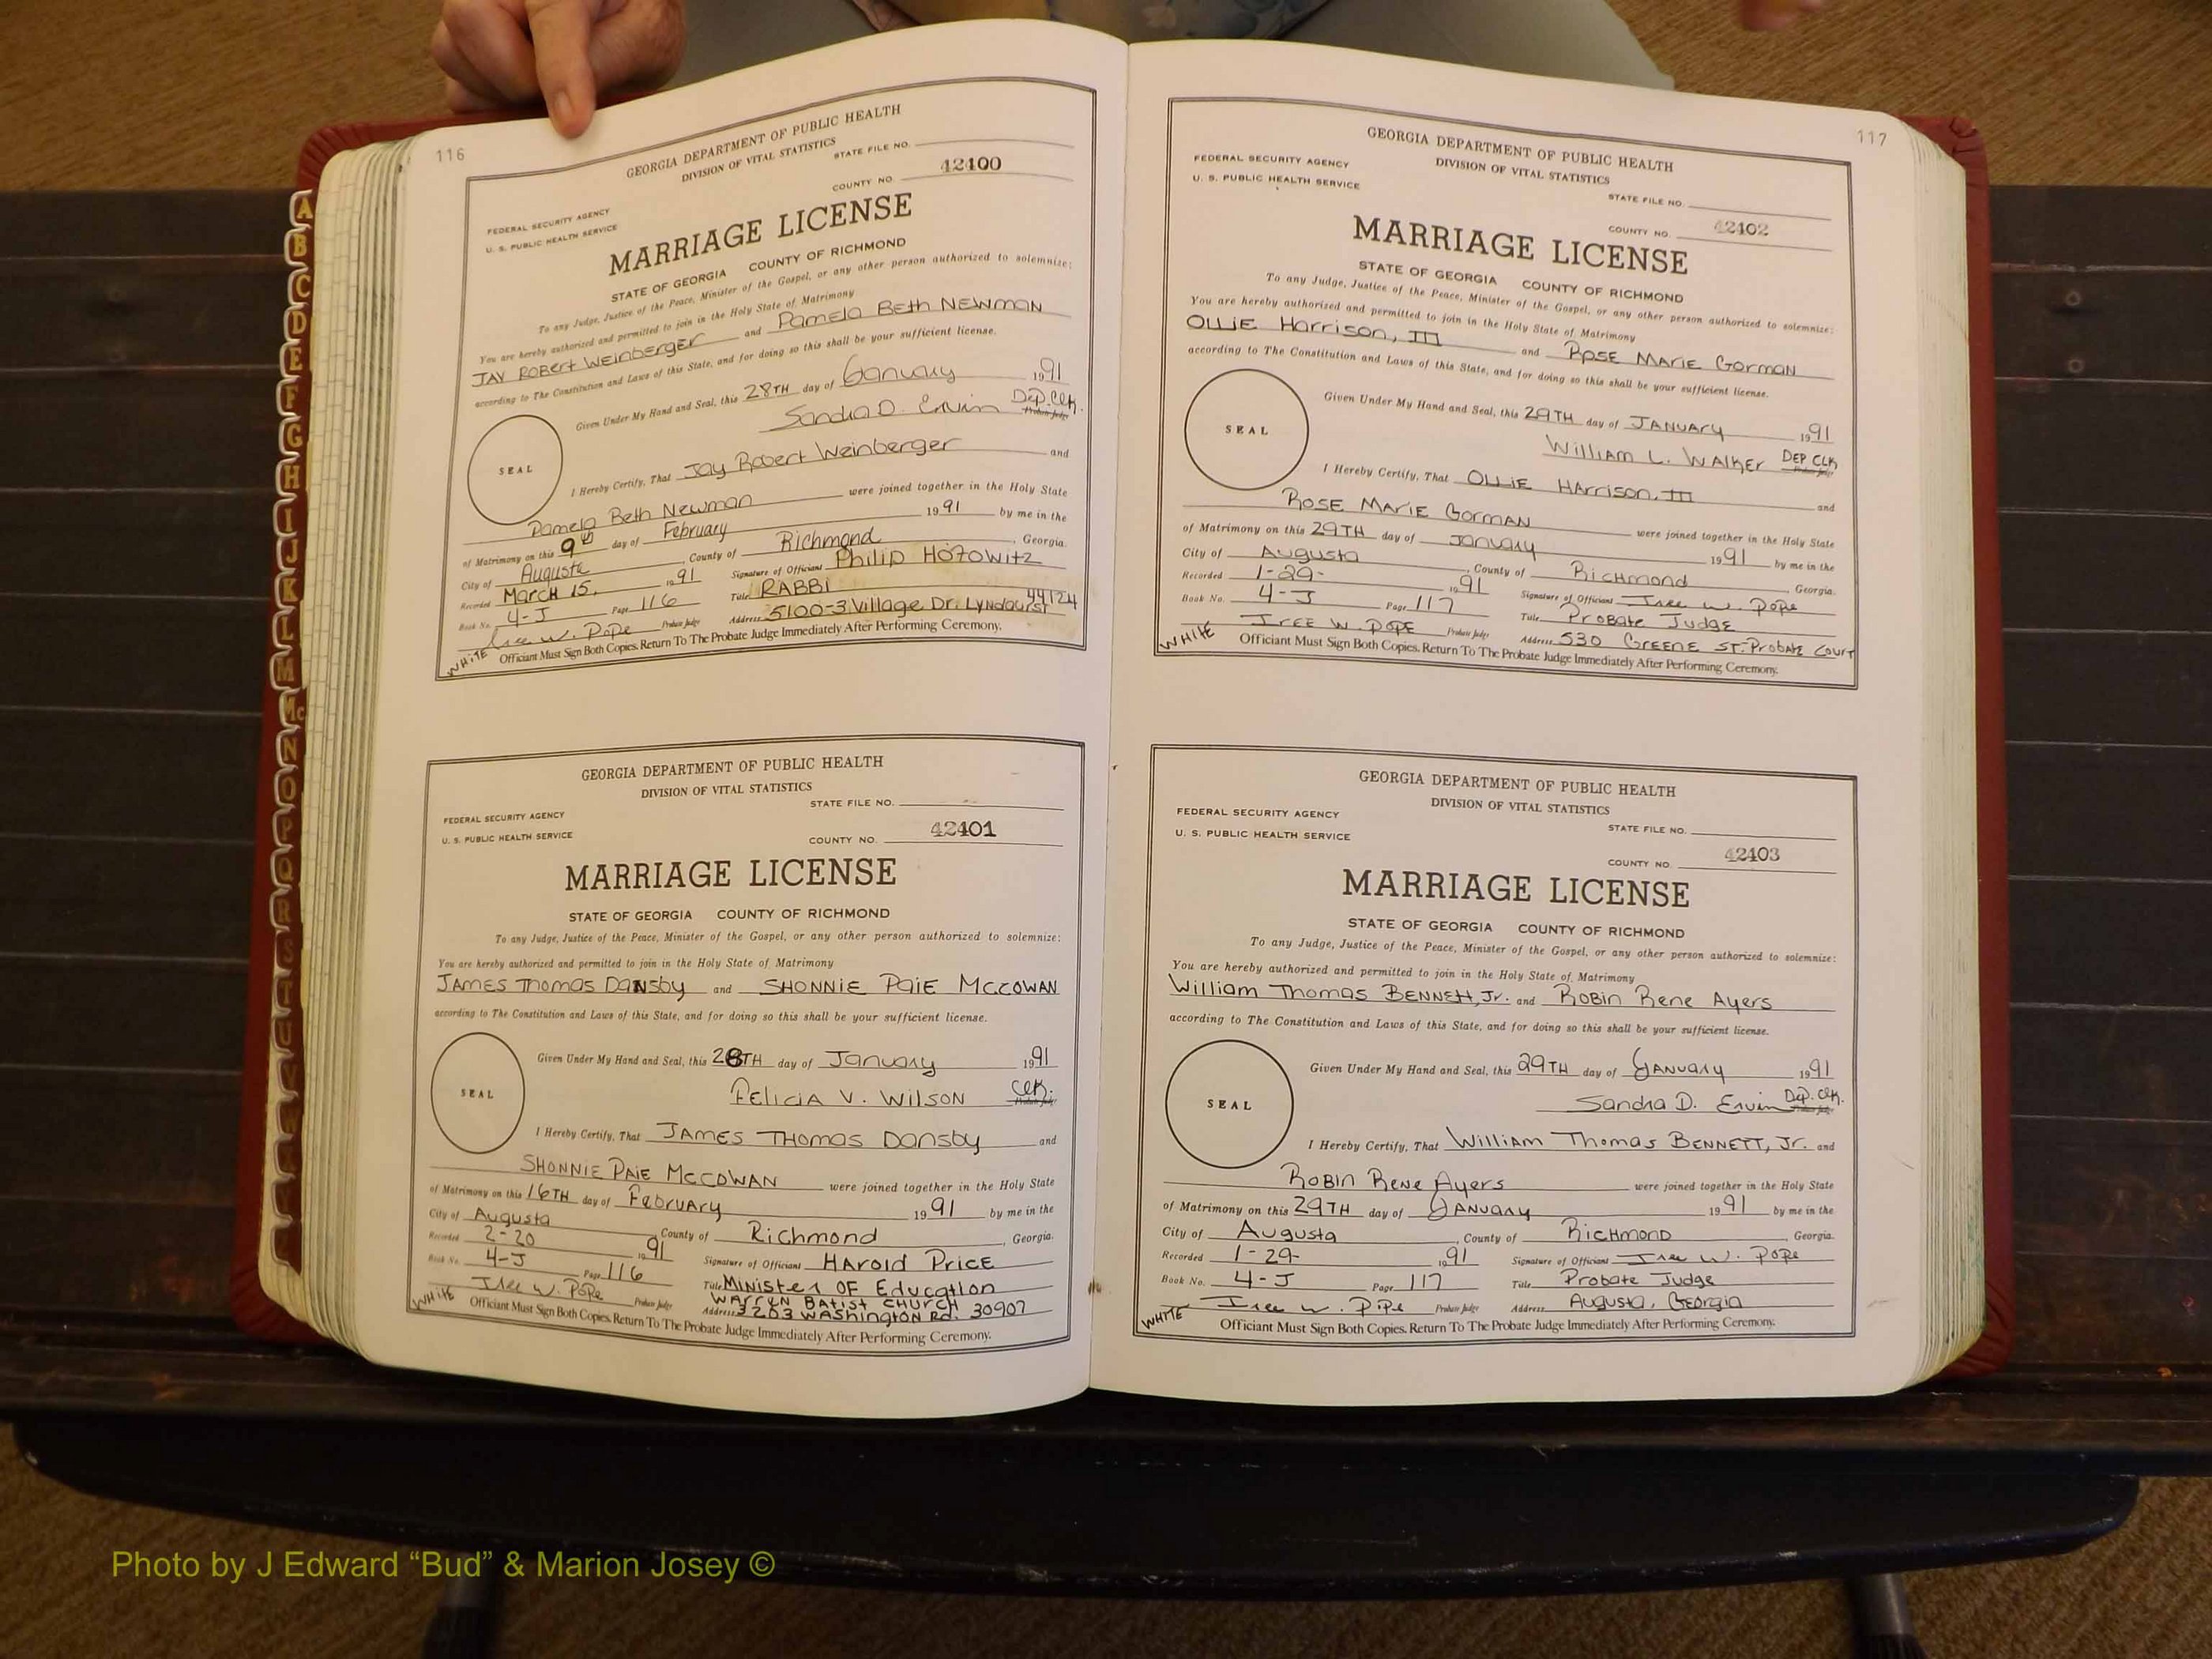 116
GEORGIA DEPARTMENT OF PUBLIC HEALTH
DIVISION OF VITAL STATISTICS
STATE FILE NO.
FEDERAL SECURITY AGENCY
U. S. PUBLIC HEALTH SERVICE
COUNTY NO. 42400
MARRIAGE LICENSE
STATE OF GEORGIA COUNTY OF RICHMOND
To any Judge, Justice of the Peace, Minister of the Gospel, or any other person authorized to solemnize:
You are hereby authorized and permitted to join in the Holy State of Matrimony
JAY ROBERT WEINBERGER and PAMELA BETH NEWMAN
according to The Constitution and Laws of this State, and for doing so this shall be your sufficient license.
Given Under My Hand and Seal, this 28TH day of January 1991
Sandra D. Ervin Dep. Clk. Probate Judge
SEAL
I Hereby Certify, That Jay Robert Weinberger and
Pamela Beth Newman were joined together in the Holy State
of Matrimony on this 9th day of February 1991 by me in the
City of Augusta, County of Richmond, Georgia.
Recorded March 15, 1991 Signature of Officiant Philip Horowitz
Book No. 4-J Page 116 Title RABBI
Iree W. Pope Probate Judge Address 5100-3 Village Dr. Lyndhurst 44124
WHITE Officiant Must Sign Both Copies. Return To The Probate Judge Immediately After Performing Ceremony.
GEORGIA DEPARTMENT OF PUBLIC HEALTH
DIVISION OF VITAL STATISTICS
STATE FILE NO.
FEDERAL SECURITY AGENCY
U. S. PUBLIC HEALTH SERVICE
COUNTY NO. 42401
MARRIAGE LICENSE
STATE OF GEORGIA COUNTY OF RICHMOND
To any Judge, Justice of the Peace, Minister of the Gospel, or any other person authorized to solemnize:
You are hereby authorized and permitted to join in the Holy State of Matrimony
JAMES Thomas Dansby and SHONNIE PAIE MCCOWAN
according to The Constitution and Laws of this State, and for doing so this shall be your sufficient license.
Given Under My Hand and Seal, this 28TH day of January 1991
Felicia V. Wilson Clk. Probate Judge
SEAL
I Hereby Certify, That JAMES THomas Dansby and
SHONNIE PAIE McCOWAN were joined together in the Holy State
of Matrimony on this 16TH day of February 1991 by me in the
City of Augusta, County of Richmond, Georgia.
Recorded 2-20 1991 Signature of Officiant HArold Price
Book No. 4-J Page 116 Title Minister OF Education
WARREN BATIST CHURCH
Iree W. Pope Probate Judge Address 3203 WAshington Rd. 30907
WHITE Officiant Must Sign Both Copies. Return To The Probate Judge Immediately After Performing Ceremony.
117
GEORGIA DEPARTMENT OF PUBLIC HEALTH
DIVISION OF VITAL STATISTICS
FEDERAL SECURITY AGENCY
U. S. PUBLIC HEALTH SERVICE
STATE FILE NO.
COUNTY NO. 42402
MARRIAGE LICENSE
STATE OF GEORGIA COUNTY OF RICHMOND
To any Judge, Justice of the Peace, Minister of the Gospel, or any other person authorized to solemnize:
You are hereby authorized and permitted to join in the Holy State of Matrimony
OLLIE Harrison, III and ROSE MARIE GORMAN
according to The Constitution and Laws of this State, and for doing so this shall be your sufficient license.
Given Under My Hand and Seal, this 29TH day of JANUARY 1991
William L. Walker DEP CLK Probate Judge
SEAL
I Hereby Certify, That OLLIE HArrison, III and
ROSE MARIE GORMAN were joined together in the Holy State
of Matrimony on this 29TH day of January 1991 by me in the
City of Augusta, County of Richmond Georgia.
Recorded 1-29- 1991 Signature of Officiant Iree W. Pope
Book No. 4-J Page 117 Title Probate Judge
IREE W. POPE Probate Judge Address 530 GREENE ST.-Probate Court
WHITE Officiant Must Sign Both Copies. Return To The Probate Judge Immediately After Performing Ceremony.
GEORGIA DEPARTMENT OF PUBLIC HEALTH
DIVISION OF VITAL STATISTICS
FEDERAL SECURITY AGENCY
U. S. PUBLIC HEALTH SERVICE
STATE FILE NO.
COUNTY NO. 42403
MARRIAGE LICENSE
STATE OF GEORGIA COUNTY OF RICHMOND
To any Judge, Justice of the Peace, Minister of the Gospel, or any other person authorized to solemnize:
You are hereby authorized and permitted to join in the Holy State of Matrimony
William Thomas BENNETT, Jr. and Robin Rene Ayers
according to The Constitution and Laws of this State, and for doing so this shall be your sufficient license.
Given Under My Hand and Seal, this 29TH day of January 1991
Sandra D. Ervin Dep. Clk. Probate Judge
SEAL
I Hereby Certify, That William Thomas BENNETT, Jr. and
Robin Rene Ayers were joined together in the Holy State
of Matrimony on this 29TH day of January 1991 by me in the
City of Augusta, County of Richmond Georgia.
Recorded 1-29- 1991 Signature of Officiant Iree W. Pope
Book No. 4-J Page 117 Title Probate Judge
Iree W. Pipe Probate Judge Address Augusta, Georgia
WHITE Officiant Must Sign Both Copies. Return To The Probate Judge Immediately After Performing Ceremony.
A
B
C
D
E
F
G
H
I
J
K
L
M
Mc
N
O
P
Q
R
S
T
U
Photo by J Edward “Bud” & Marion Josey ©